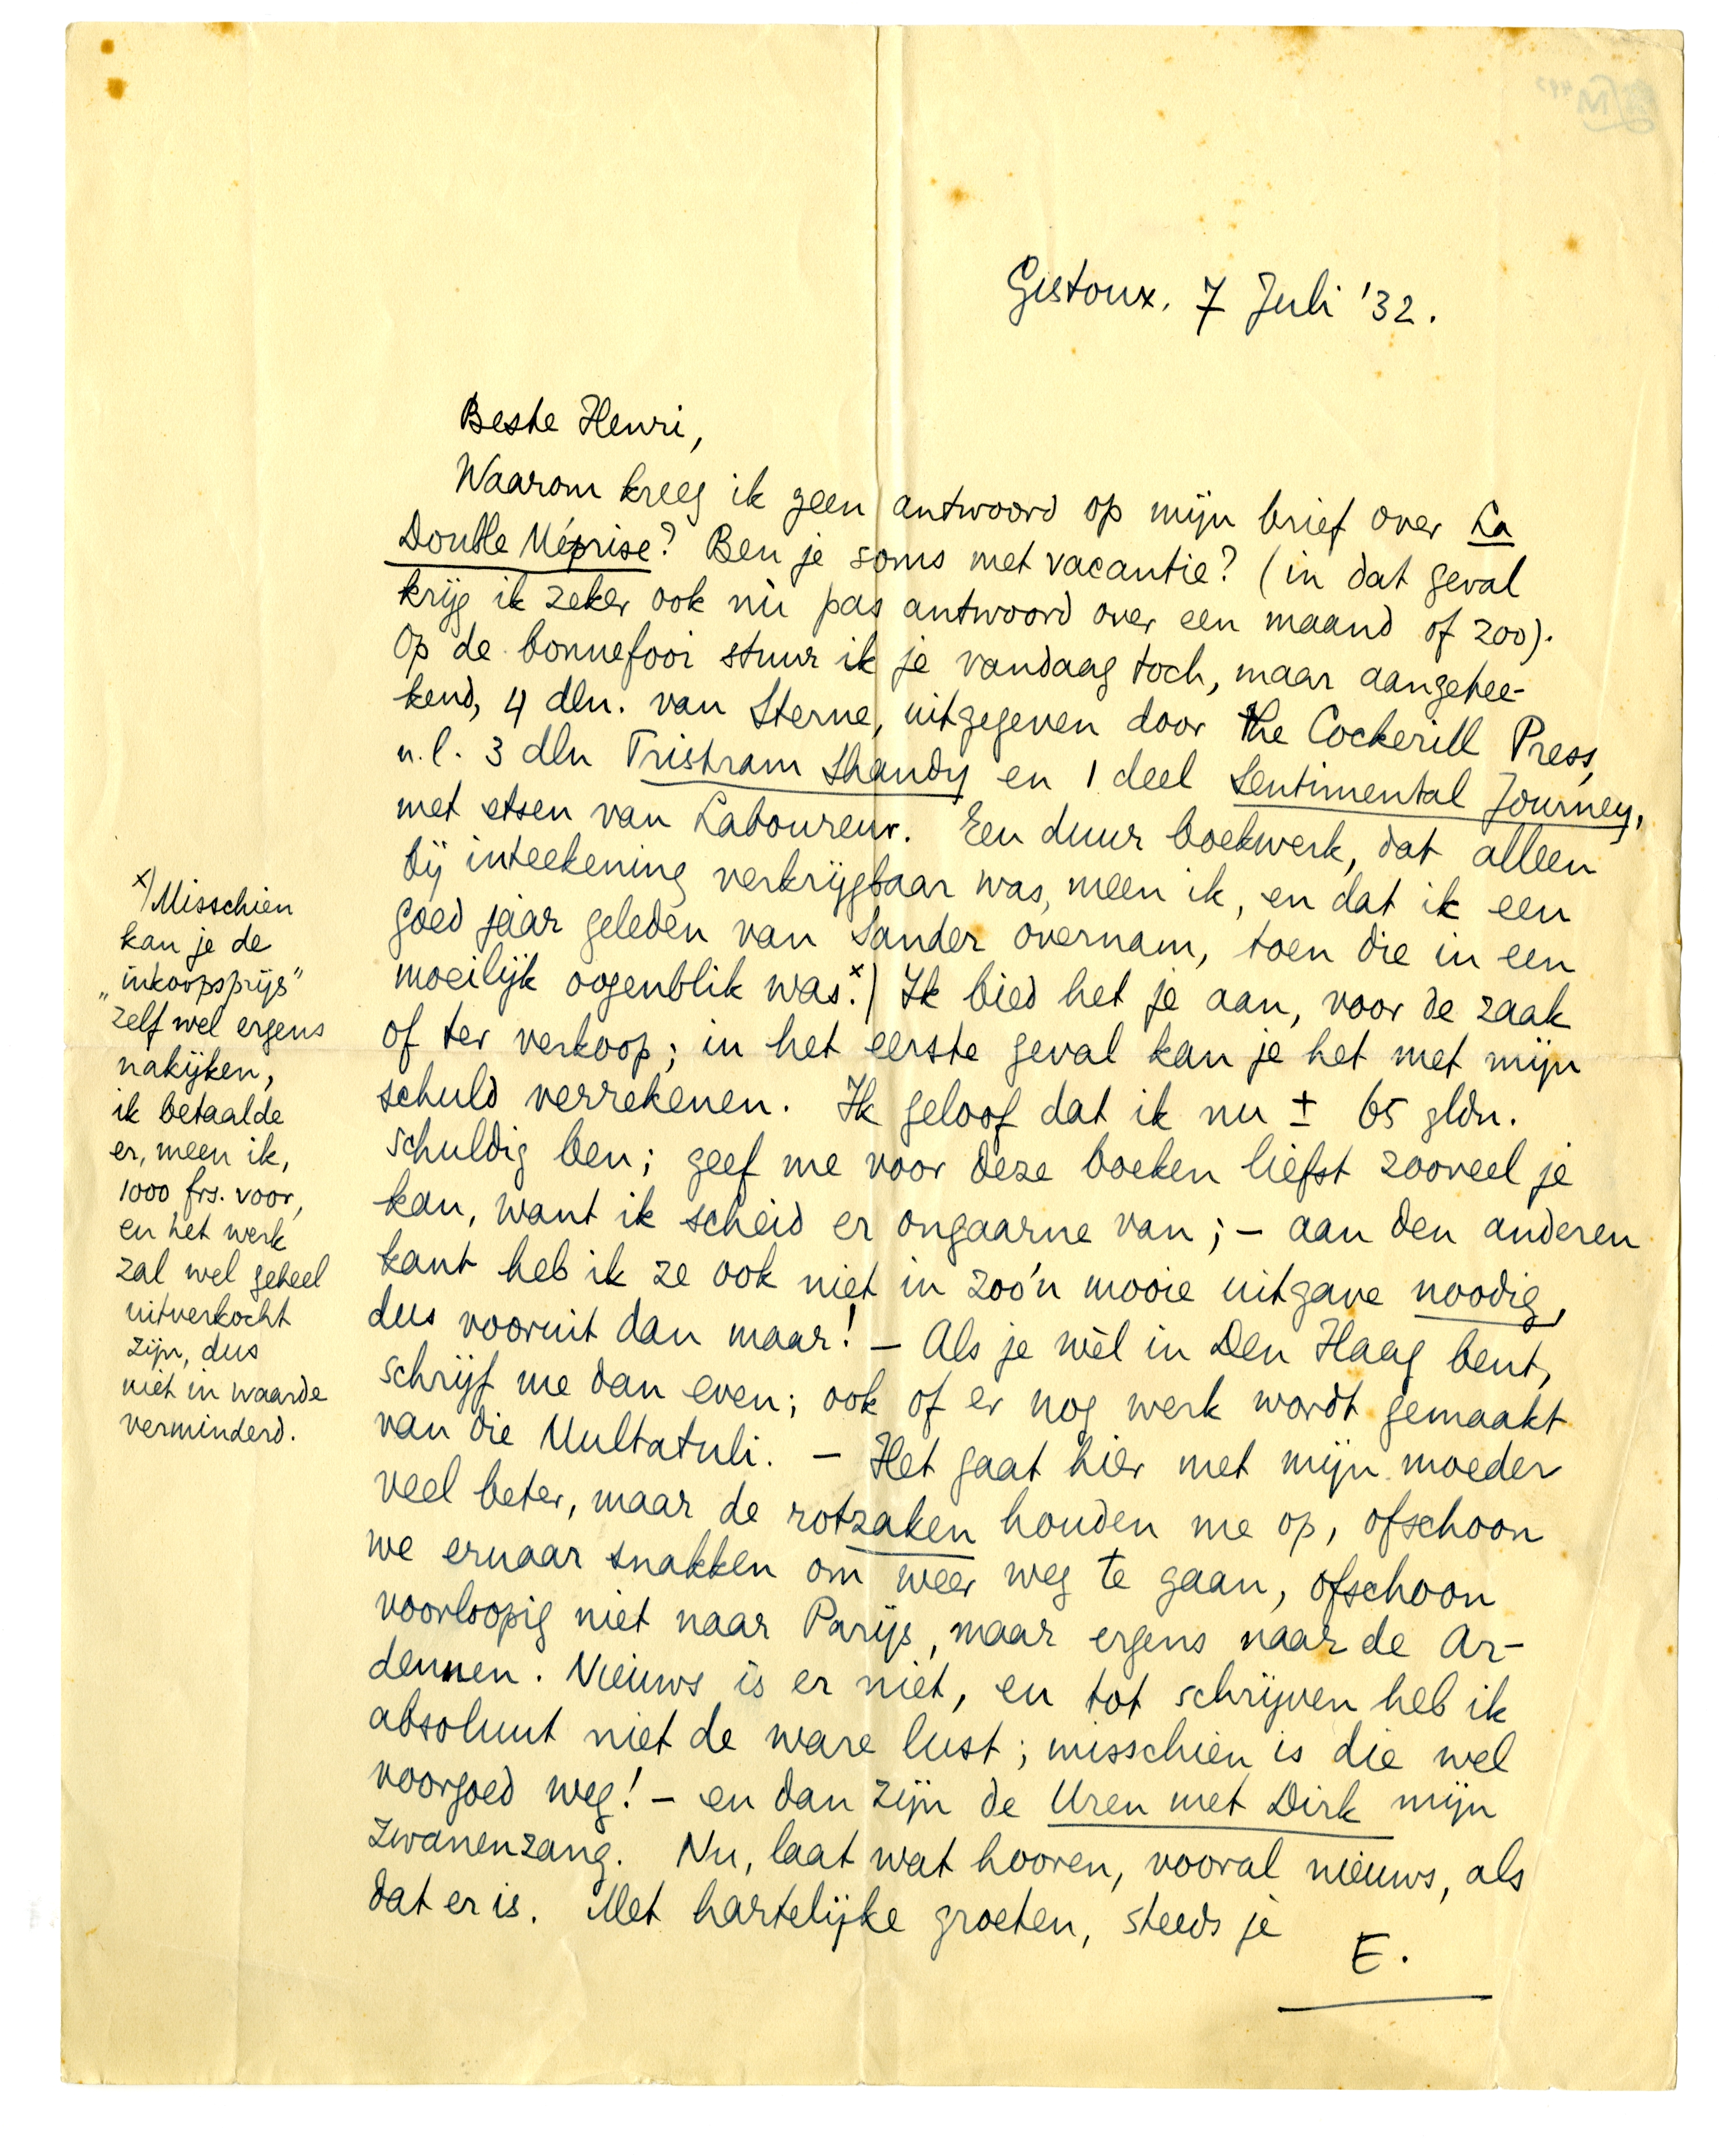 Gistoux. 7 Juli '32.
Beste Henri,
Waarom kreeg ik geen antwoord op mijn brief over La
Double Méprise? Ben je soms met vacantie? (in dat geval
krijg ik zeker ook nù pas antwoord over een maand of zoo).
Op de bonnefooi stuur ik je vandaag toch, maar aangetee-
kend, 4 dln. van Sterne, uitgegeven door the Cockerill Press,
n.l. 3 dln Tristram Shandy en 1 deel Sentimental Journey,
met etsen van Laboureur. Een duur boekwerk, dat alleen
bij inteekening verkrijgbaar was, meen ik, en dat ik een
goed jaar geleden van Sander overnam, toen die in een
moeilijk oogenblik was.x) Ik bied het je aan, voor de zaak
of ter verkoop; in het eerste geval kan je het met mijn
schuld verrekenen. Ik geloof dat ik nu ± 65 gldn.
schuldig ben; geef me voor deze boeken liefst zooveel je
kan, want ik scheid er ongaarne van; – aan den anderen
kant heb ik ze ook niet in zoo'n mooie uitgave noodig,
dus vooruit dan maar! – Als je wèl in Den Haag bent,
schrijf me dan even; ook of er nog werk wordt gemaakt
van die Multatuli. – Het gaat hier met mijn moeder
veel beter, maar de rotzaken houden me op, ofschoon
we ernaar snakken om weer weg te gaan, ofschoon
voorloopig niet naar Parijs, maar ergens naar de Ar-
dennen. Nieuws is er niet, en tot schrijven heb ik
absoluut niet de ware lust; misschien is die wel
voorgoed weg! – en dan zijn de Uren met Dirk mijn
zwanenzang. Nu, laat wat hooren, vooral nieuws, als
dat er is. Met hartelijke groeten, steeds je
E.
x) Misschien
kan je de
„inkoopsprijs"
zelf wel ergens
nakijken,
ik betaalde
er, meen ik,
1000 frs. voor,
en het werk
zal wel geheel
uitverkocht
zijn, dus
niet in waarde
verminderd.